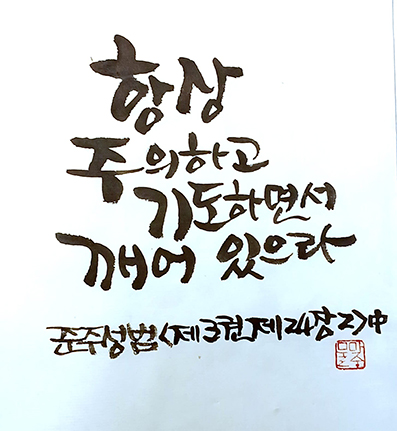 항상
주의하고
기도하면서
깨어 있으라
준주성범<제3권제24장2>中